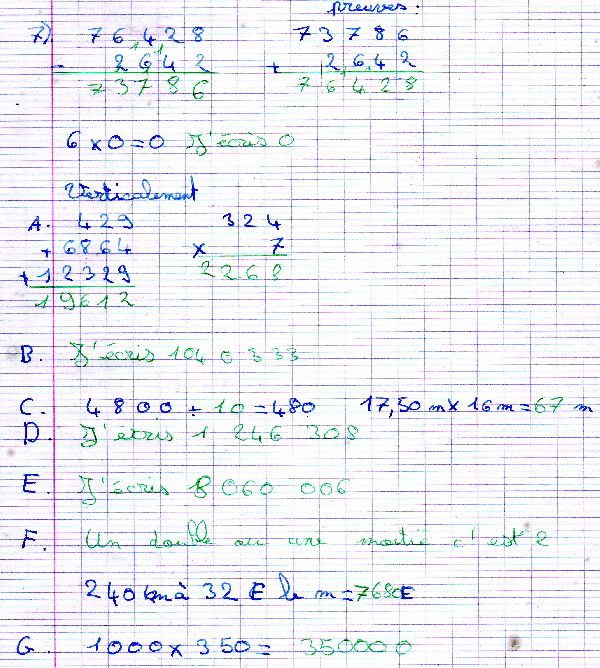 preuves.
7) 76428 73786
- 2642 + 2642
73786 76428
6 x 0 = 0 J'écris 0
Verticalement
A. 429 324
+ 6864 x 7
+ 12329 2268
19612
B. J'écris 104 0 333
C. 4800 ÷ 10 = 480 17,50 m x 16 m = 67 m
D. J'écris 1 246 308
E. J'écris 8 060 006
F. Un double ou une moitié c'est 2
240 km à 32 € le m = 7680€
G. 1000 x 350 = 350000